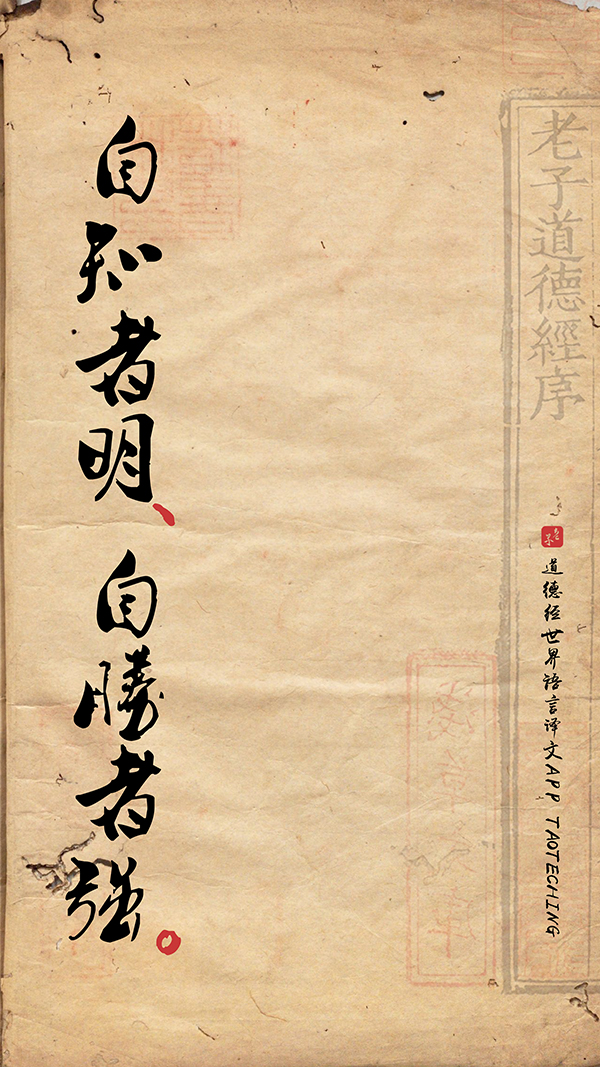 老子道德經序
老子
道德经世界语言译文APP TAOTECHING
自知者明、
自勝者强。